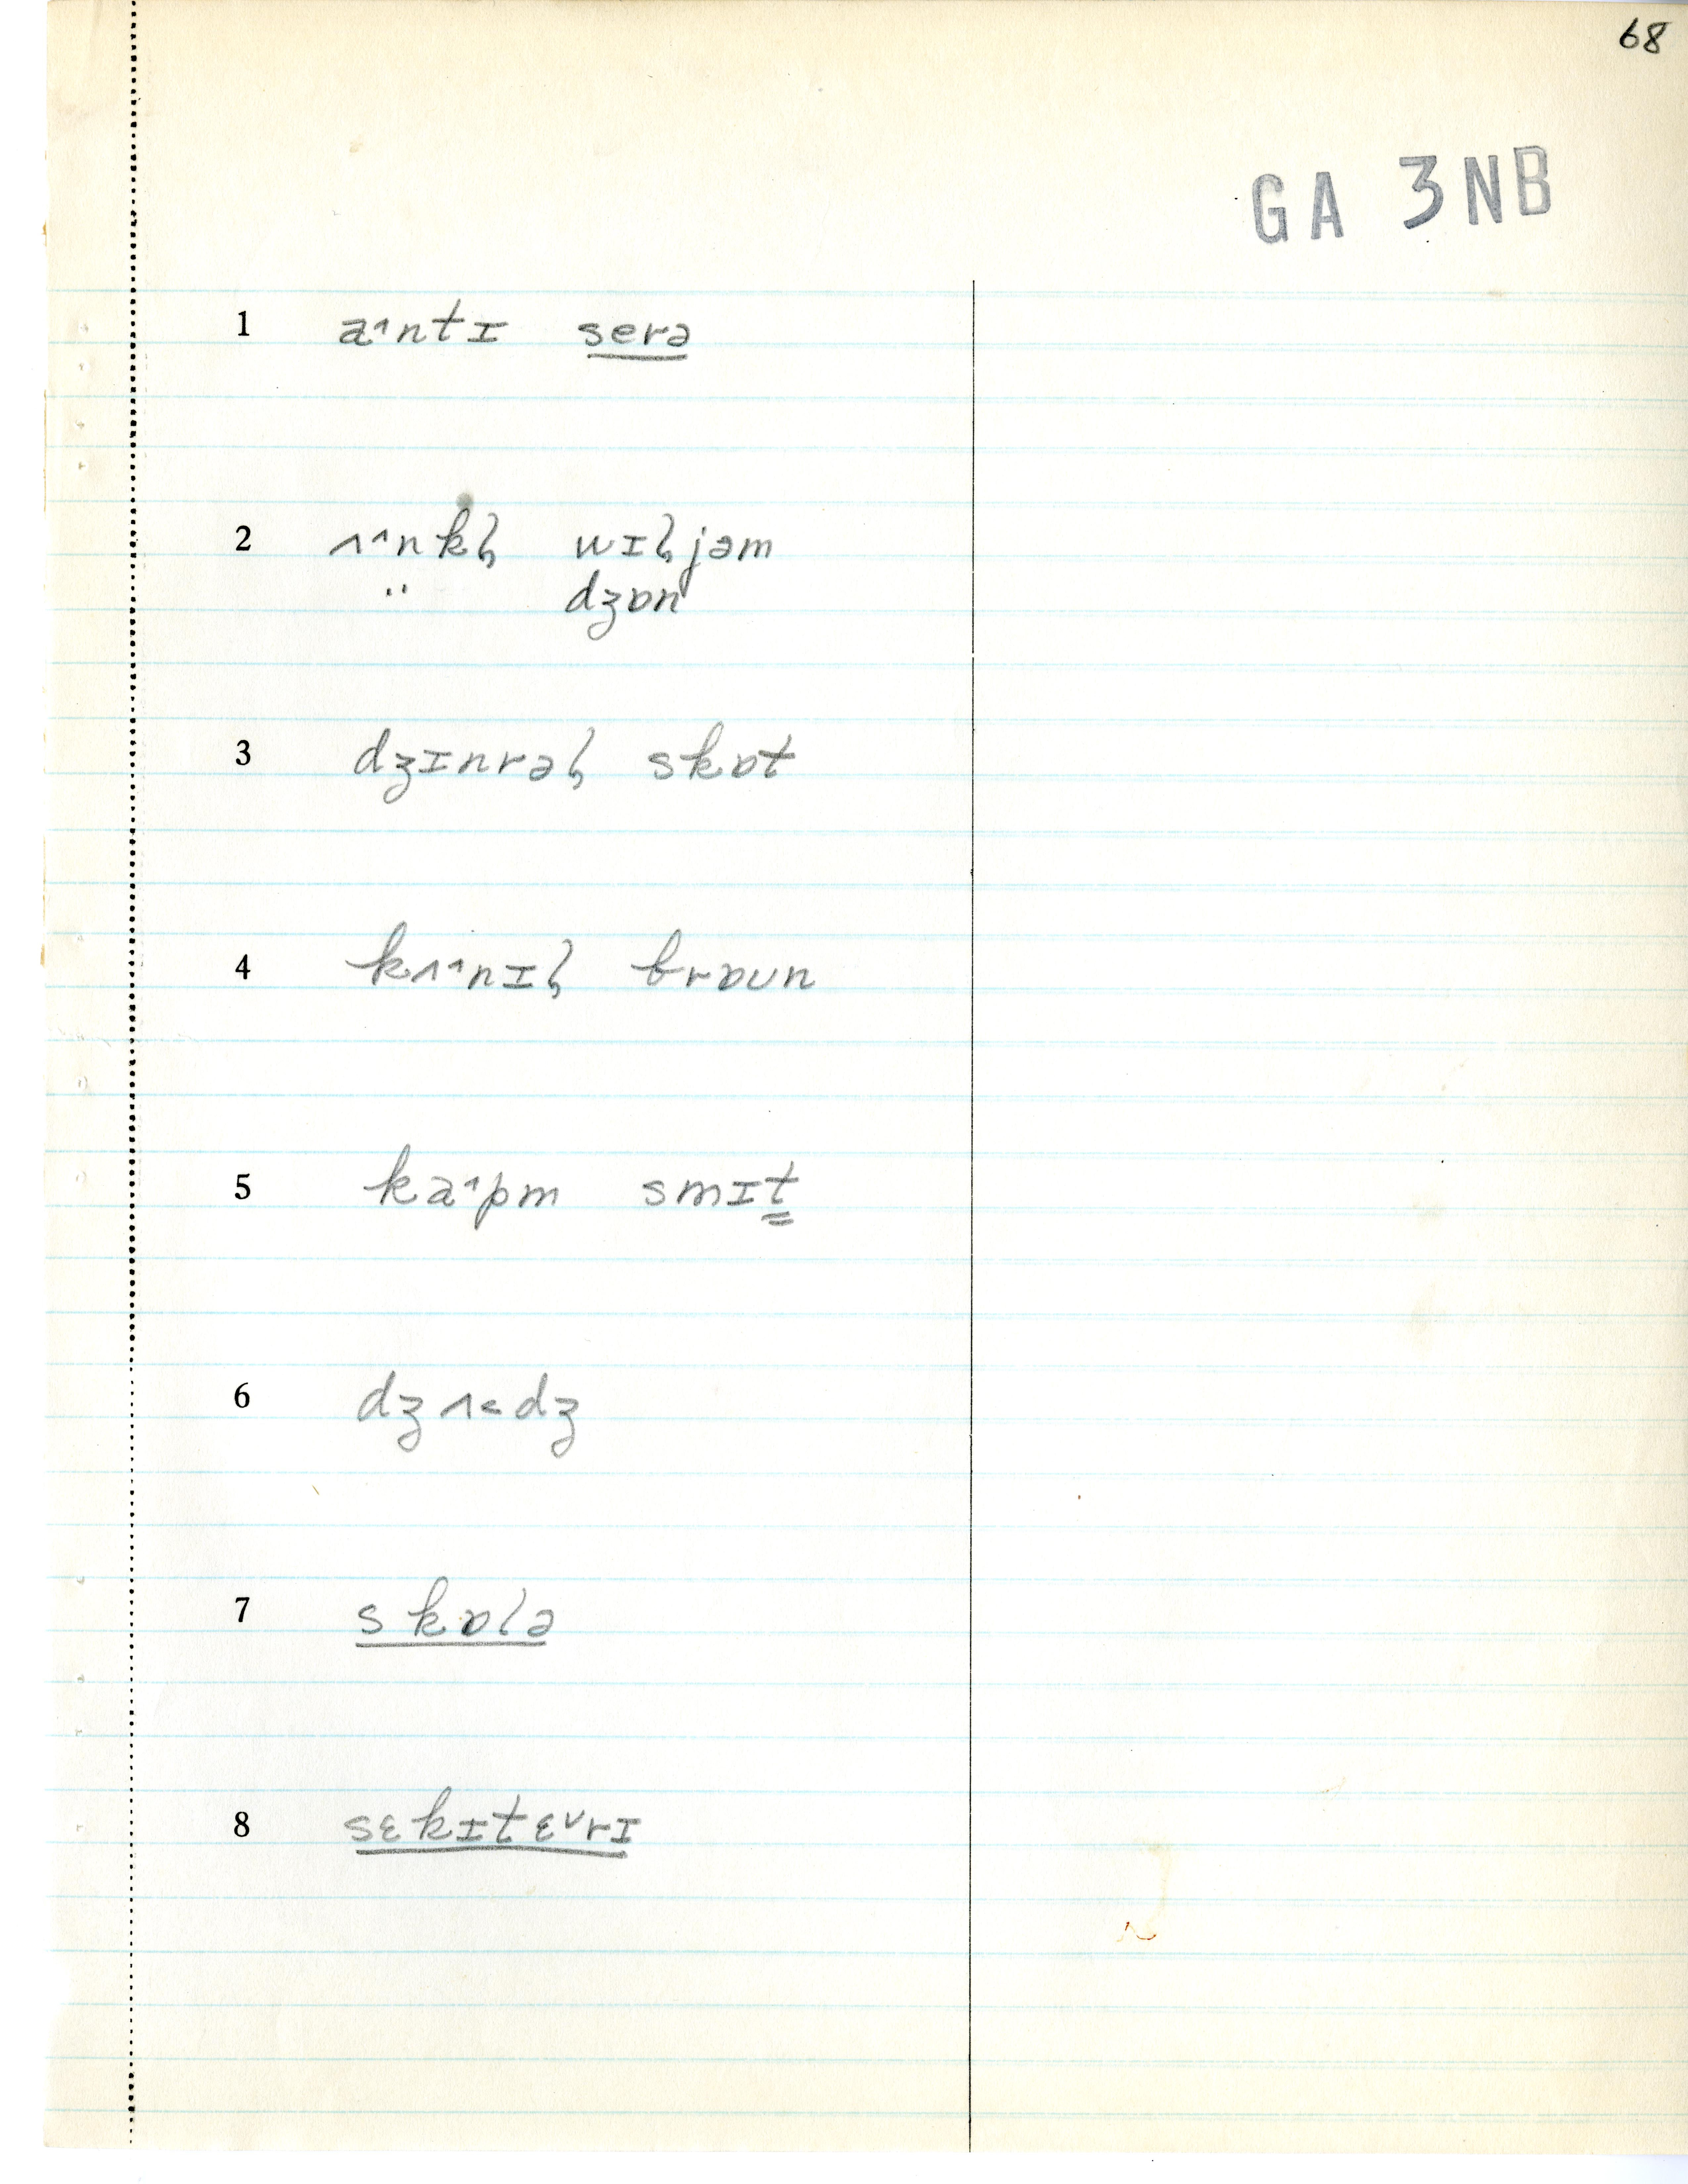 68
GA 3NB
1 a˄ntɪ serə
2 ʌ˄nkɫ wɪɫjəm
" dʒɒn
3 dʒɪnrəɫ skɒt
4 kʌ˄nɪɫ brɒun
5 ka˄pm smɪt̳
6 dʒʌ˂dʒ
7 skɒlə
8 sɛkɪtɛ˅rɪ